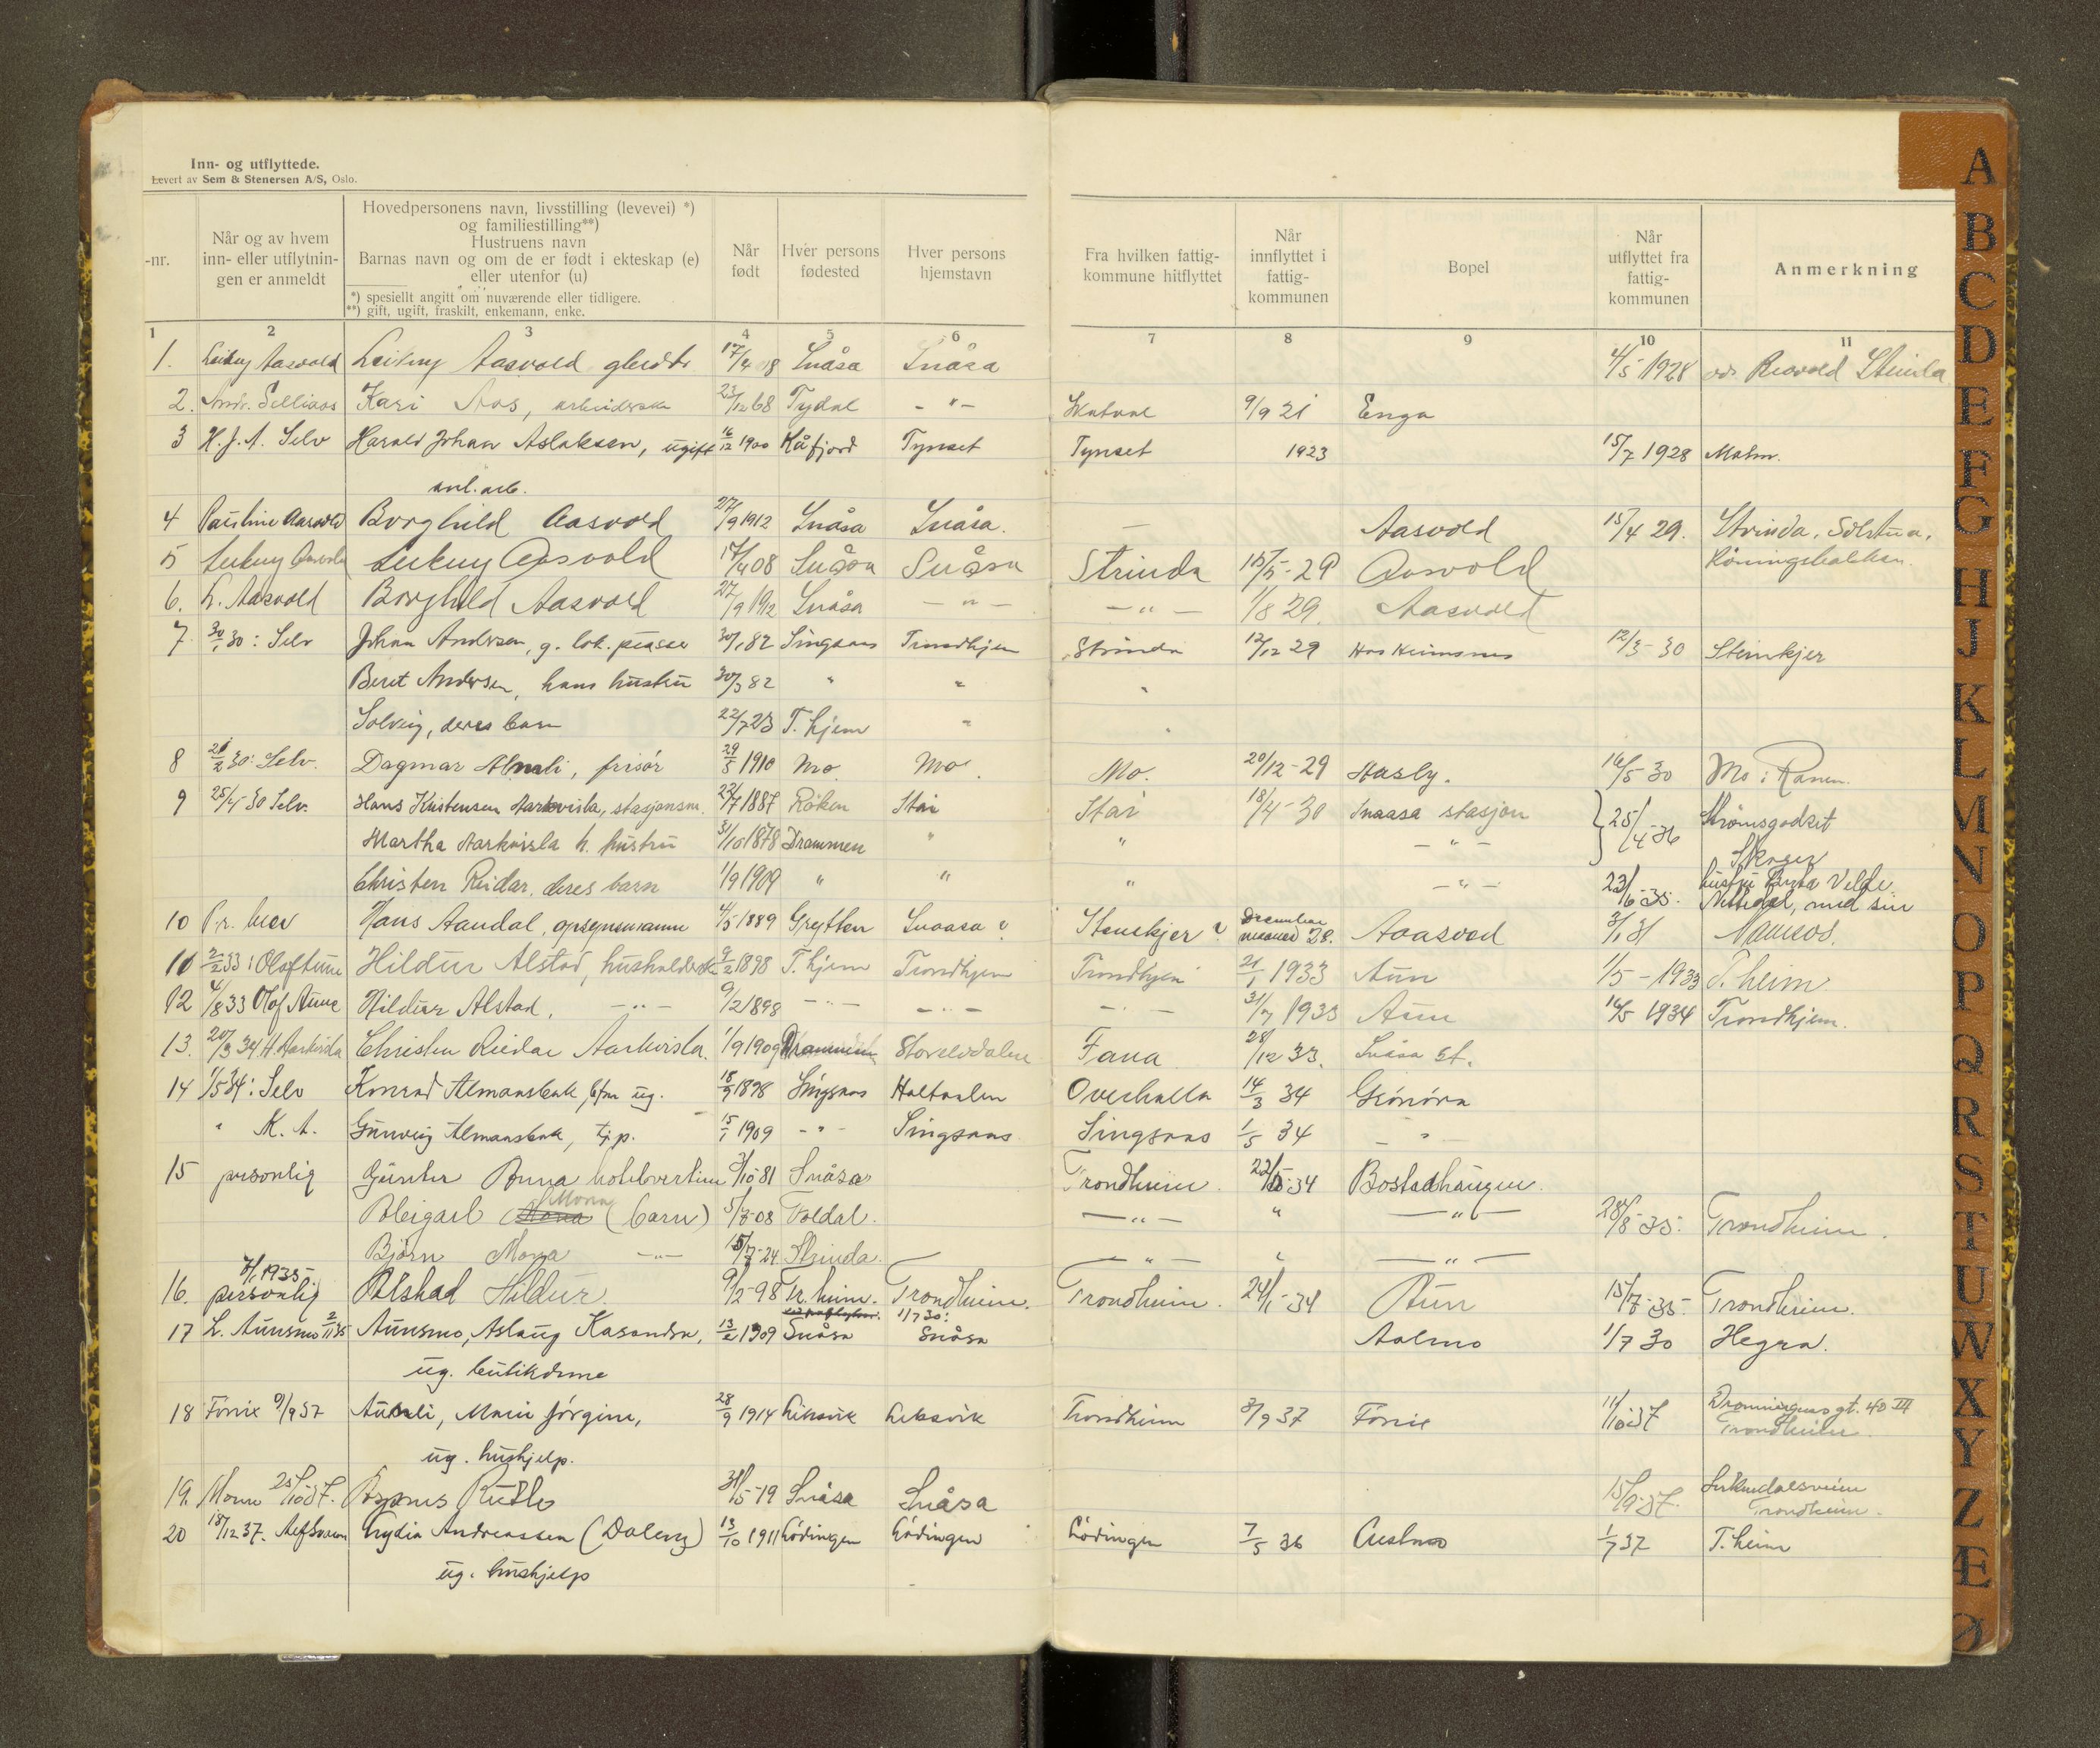 Inn- og utflyttede.
Levert av Sem & Stenersen A/S, Oslo.
-nr.
Når og av hvem inn- eller utflytnin- gen er anmeldt
Hovedpersonens navn, livsstilling (levevei) *)
og familiestilling**)
Hustruens navn
Barnas navn og om de er født i ekteskap (e)
eller utenfor (u)
*) spesiellt angitt om nuværende eller tidligere.
**) gift, ugift, fraskilt, enkemann, enke.
Når født
Hver persons fødested
Hver persons hjemstavn
Fra hvilken fattig- kommune hitflyttet
Når innflyttet i fattig- kommunen
Bopel
Når utflyttet fra fattig- kommunen
Anmerkning
1 2 3 4 5 6 7 8 9 10 11
1. Aasvold Aasvold 17/4 08 Snåsa Snåsa 4/5 1928
2. Andr. Selliaas Kari Aas, 23/12 68 Tydal - " - 9/9 21 Enga
3 H. J. A. Selv Harald Johan Aslaksen, ugift 16/12 1900 Kåfjord Tynset Tynset 1923 15/7 1928 Malm.
anl. arb.
4 Pauline Aasvold Borghild Aasvold 27/9 1912 Snåsa Snåsa. — Aasvold 15/4 29. Strinda, Solstua,
5 Aasvold 17/4 08 Snåsa Snåsa Strinda 15/5-29 Aasvold
6. L. Aasvold Borghild Aasvold 27/9 1912 Snåsa - " - - " - 1/8 29. Aasvold
7 30/1 30: Selv Johan Andersen, g. lok. 30/1 82 Singsaas Trondhjem Strinda 12/12 29 12/3-30 Steinkjer
Beret Andersen, hans hustru 30/3 82 " " "
Solveig, deres barn 22/7 23 T. hjem " "
8 21/2 30: Selv. Dagmar Almli, frisør 29/5 1910 Mo Mo. Mo. 20/12-29 Hasly. 16/5 30 Mo i Ranen.
9 25/4-30 Selv. Hans Kristensen Aarkvisla, stasjonsm. 22/7 1887 Røken 18/4-30 Snaasa stasjon 25/4-36 Strømsgodset
Martha Aarkvisla h. hustru 31/10 1878 Drammen " " - " - Skoger
Christen Reidar, deres barn 1/9 1909 " " " - " - 23/6-35.
10 Hans Aandal, opsynsmann 4/5 1889 Grytten Snaasa ? Stenkjer ? December maaned 28. Aaasvold 3/1 31 Namsos.
11 2/2 33: Olaf Aune Hildur Alstad, 9/2 1898 T. hjem Trondhjem Trondhjem 21/1 1933 Aun 1/5-1933 T. heim
12 4/8 33 Olaf Aune Hildur Alstad, - " - 9/2 1898 - " - - " - - " - 31/7 1933 Aun 16/5 1934 Trondhjem.
13. 20/3 34 H. Aarkvisla Christen Reidar Aarkvisla. 1/9 1909 Drammen Storelvdalen Fana 28/12 33. Snåsa st.
14 1/5 34: Selv Konrad Almansbak, ug. 18/9 1898 Singsaas Haltdalen Overhalla 14/3 34 Grónóra
" K. A. Gunveig Almansbak, tj.p. 15/1 1909 - " - Singsaas Singsaas 1/5 34 - " -
15 personlig Günter Anna hotelvertinne 3/10-81 Snåsa Trondheim. 22/5-34 Bostadhaugen.
Mona (barn) Foldal. - " - " - " - 28/8-35. Trondheim.
Björn Mona - " - 15/7-24 Strinda. - " - " - " -
7/1 1935
16. personlig Alstad Hildur 9/2-98 Tr. heim. Trondheim. Trondheim. 24/1-34 Aun 15/7-35. Trondheim.
1/7 30:
17 L. Aunsmo 2/11 35 Aunsmo, Aslaug Kasandra, 13/2 1909 Snåsa Snåsa Aalmo 1/7 30 Hegra.
ug. butikdame
18 Finnie 9/9 37 Aunli, Marie Jórgine, 28/9 1914 Leksvik Leksvik Trondheim 8/9 37 11/10-37 Dronningensgt. 40 III
Trondheim.
ug. hushjelp.
19. Moum 25/10-37. Ruth 31/5-19 Snåsa Snåsa 15/9-37.
Trondheim.
20 18/12 37. Lydia Andreassen (Dalen) 13/10 1911 Lödingen Lödingen Lödingen 7/5 36 1/7 37 T. heim
ug. hushjelp
A
B
C
D
E
F
G
H
J
K
L
M
N
O
P
Q
R
S
T
U
W
X
Y
Z
Æ
Ø